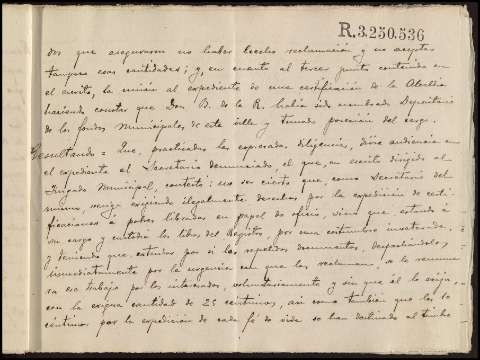 R.3.250.536
dos que aseguraron no haber hecho reclamación y no aceptar
tampoco esas cantidades; y, en cuanto al tercer punto contenido en
el escrito, la unión al expediente de una certificación de la Alcaldía
haciendo constar que Don B. de la R. había sido nombrado Depositario
de los fondos Municipales de esta villa y tomado posesión del cargo.
Resultando = Que, practicadas las expresadas diligencias, dióse audiencia en
el expediente al Secretario denunciado el que, en escrito dirigido al
Juzgado Municipal, contestó: no ser cierto que, como Secretario del
mismo, venga exigiendo ilegalmente derechos por la expedición de certi-
ficaciones á pobres libradas en papel de oficio, sino que, estando á
su cargo y custodia los libros del Registro, por una costumbre inveterada,
y teniendo que extender por sí los repetidos documentos, despachándolos,
inmediatamente por la urgencia con que los reclaman, se le remune-
ra ese trabajo por los interesados, voluntariamente y sin que él lo exija,
con la exigua cantidad de 25 céntimos, así como también que los 10
céntimos por la expedición de cada fé de vida se han destinado al timbre